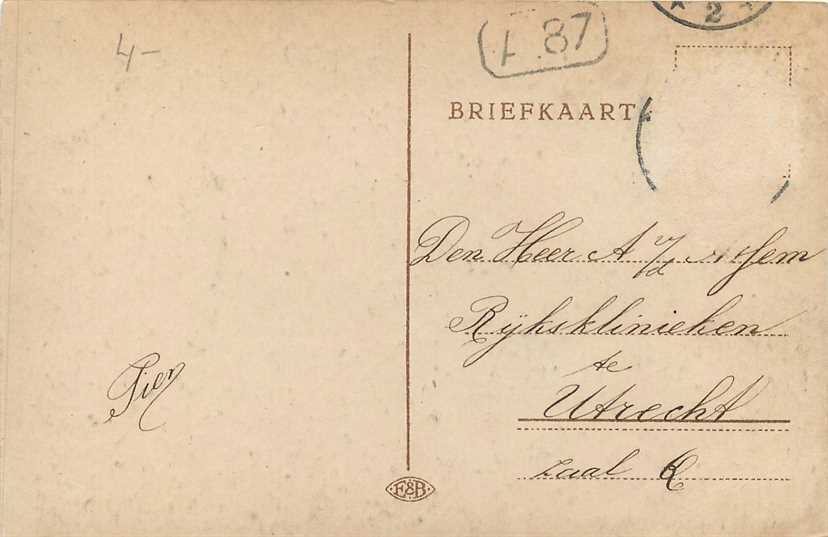 4-
87
2
BRIEFKAART
Den Heer A v/d
Rijksklinieken
te
Utrecht
zaal
Pien
E&B